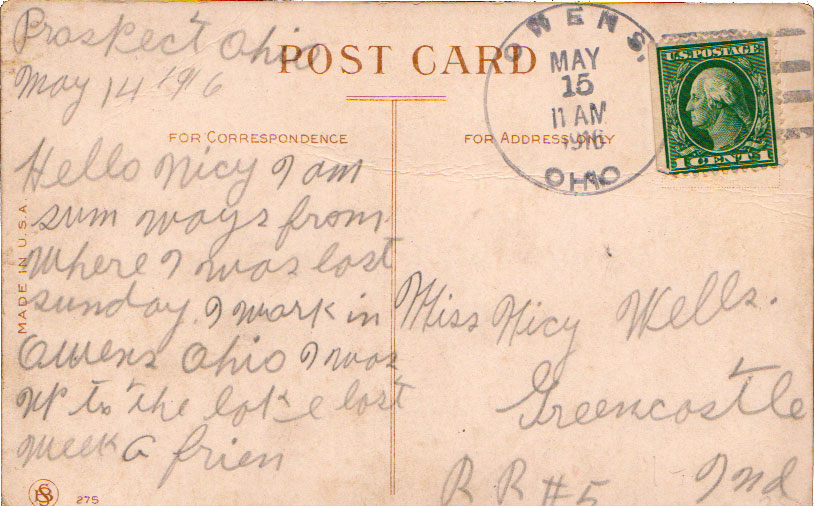 Prospect Ohio
May 14 1916
POST CARD
OWENS.
MAY
15
11 AM
1916
OHIO
U.S. POSTAGE
1 CENTS 1
FOR CORRESPONDENCE
FOR ADDRESS ONLY
Hello Nicy I am
sum ways from
where I was last
sunday. I work in
Owens Ohio I was
up to the lake last
week a frien
Miss Nicy Wells.
Greencastle
RR #5 Ind
MADE IN U.S.A.
275